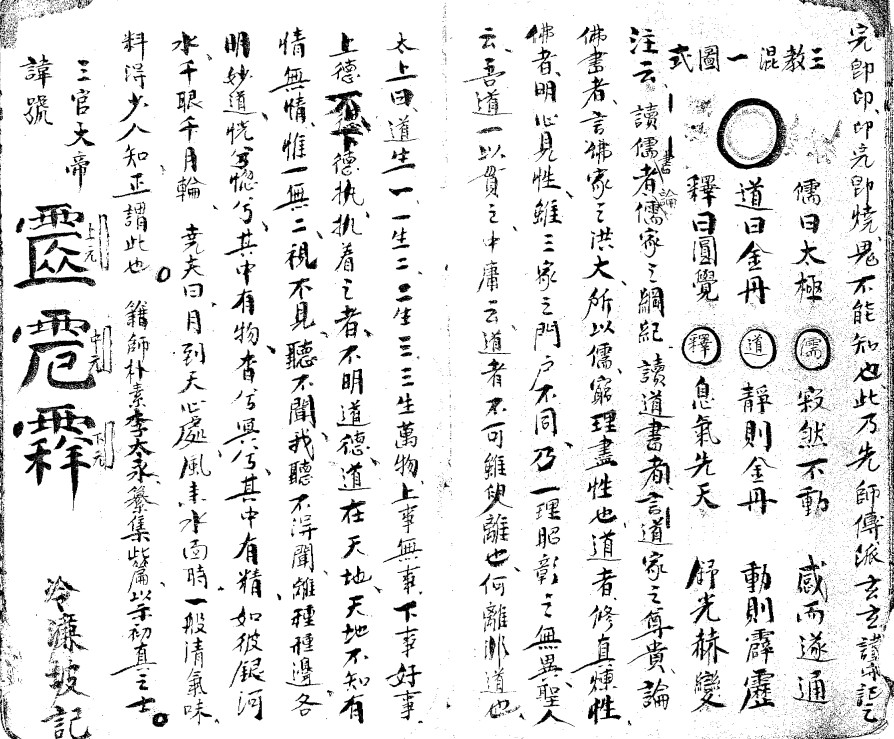 完即印、印完即燒、鬼不能知也此乃先師傳派玄玄諸牢記之
三教混一圖式
儒曰太極 儒 寂然不動 感而遂通
道曰金丹 道 靜則金丹 動則霹靂
釋曰圓覺 釋 息氣先天 舒光赫變
注云、讀儒書者論儒家之綱紀、讀道書者、言道家之尊貴、論
佛書者、言佛家之洪大、所以儒、窮理盡性也、道者、修真煉性、
佛者、明心見性、雖三家之門户不同、乃一理昭彰之無異、聖人
云、吾道一以貫之、中庸云、道者不可須臾離也、可離非道也、
太上曰、道生一、一生二、二生三、三生萬物、上事無事、下事好事、
上德不德、下德執、執着之者、不明道德、道在天地、天地不知、有
情無情、惟一無二、視不見、聽不聞、我聽不得聞、離種種邊、各
明妙道、恍兮惚兮、其中有物、杳兮冥兮、其中有精、如彼銀河
水、千眼千月輪、堯夫曰、月到天心處、風來水面時、一般清氣味、
料得少人知、正謂此也。籍師朴素李太永纂集此篇以示初真之士。
三官大帝
諱號
上元
中元
下元
冷濂坡記